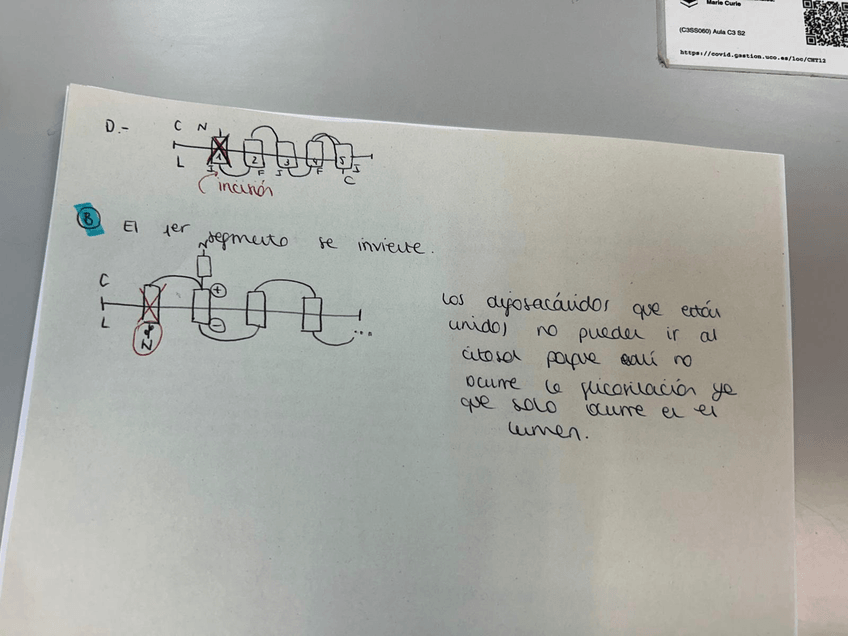 Marie Curie
(C3SS060) Aula C3 S2
https://covid.gestion.uco.es/loc/CHT12
D.-
C N
L
1 2 3 4 5
F F
C
incisión
B El 1er segmento se invierte.
N
C
+
L
-
N
...
Los oligosacáridos que están
unidos no pueden ir al
citosol porque allí no
ocurre la glicosilación ya
que solo ocurre en el
lumen.